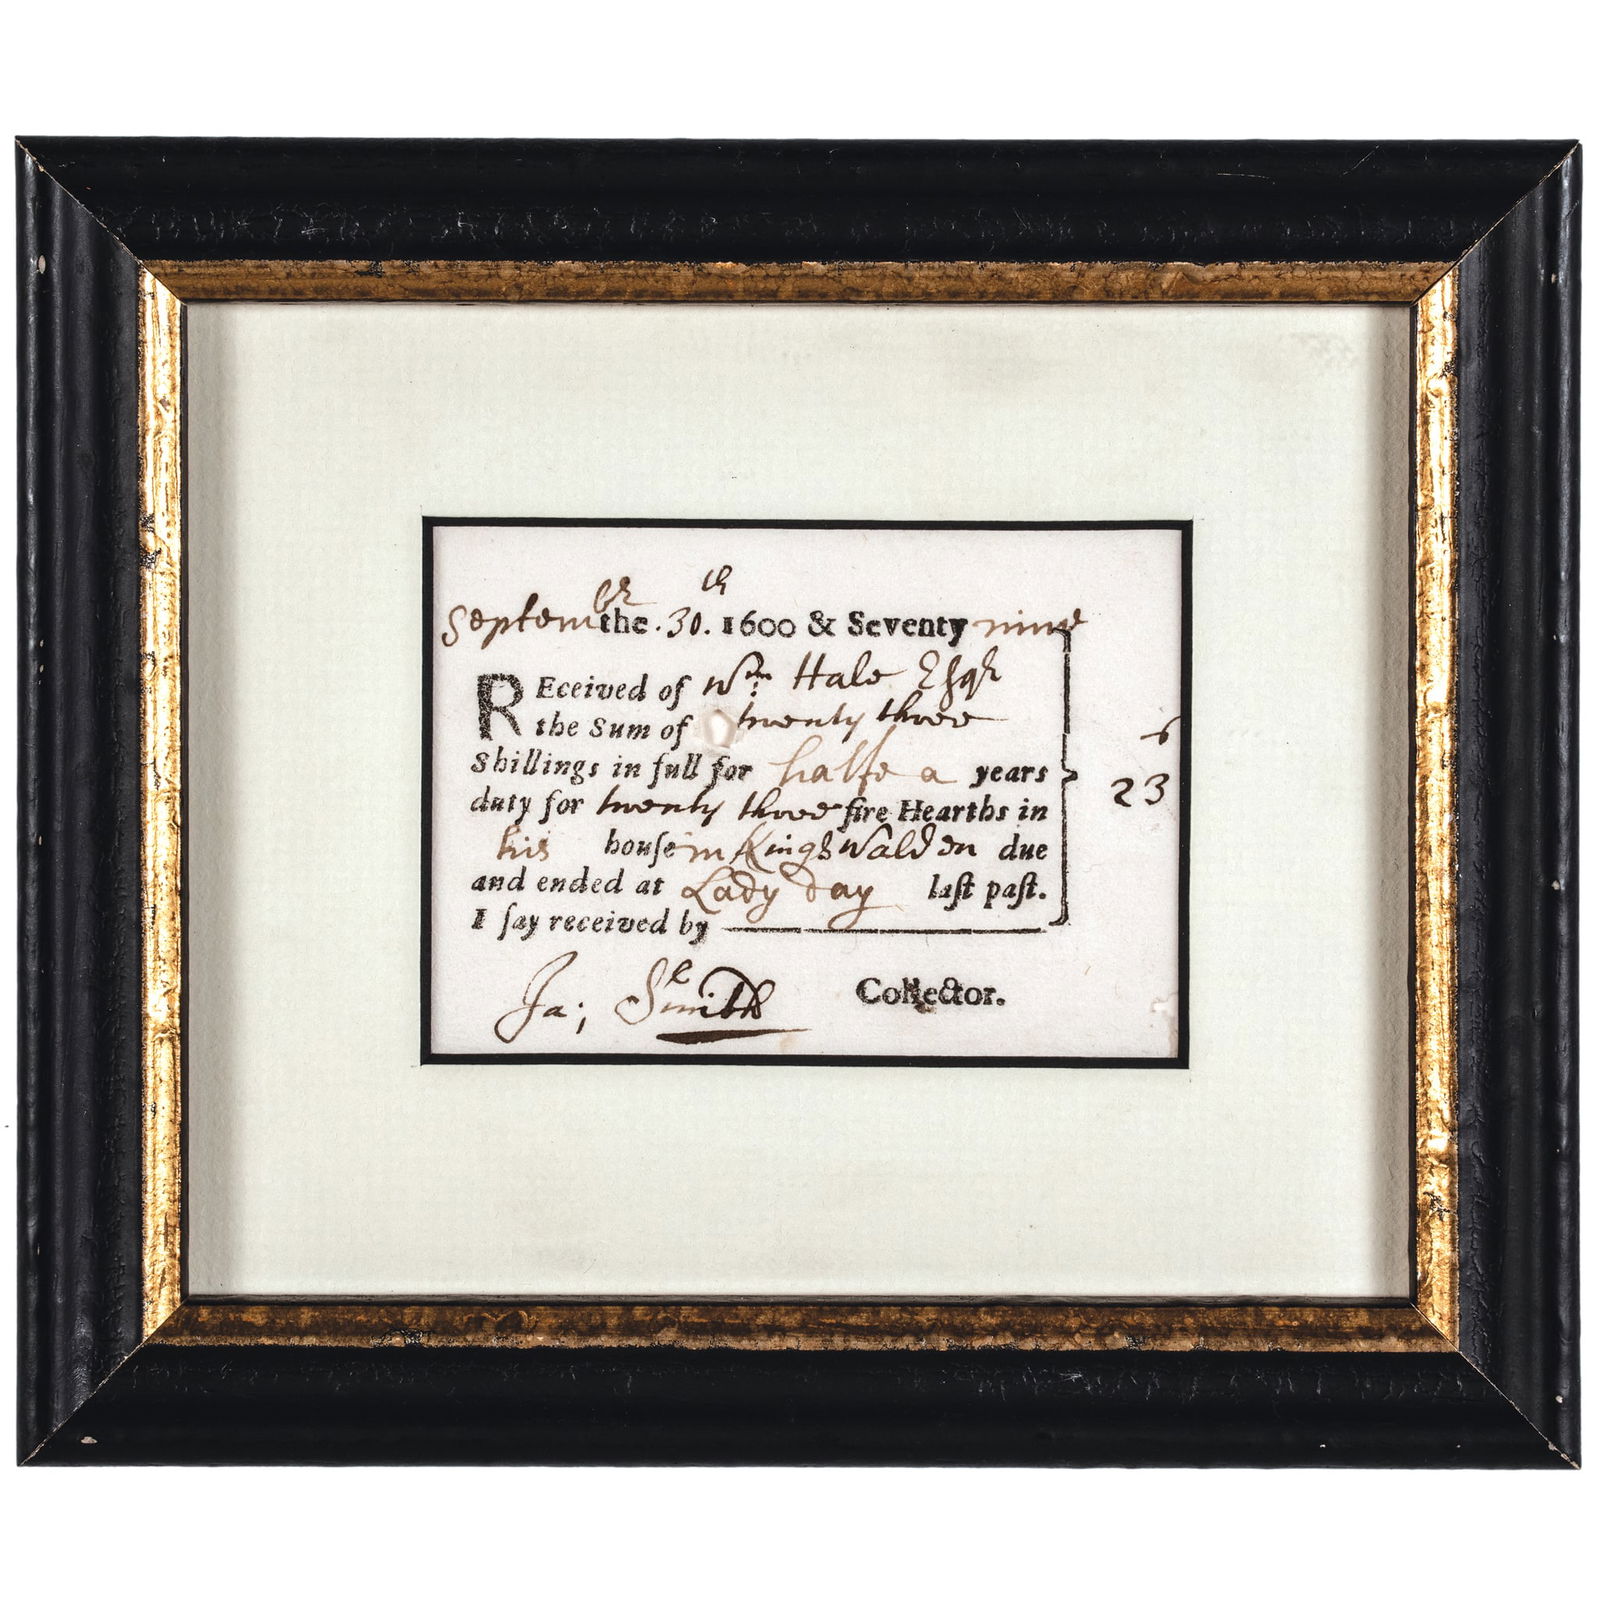 Septembr the .30.th 1600 & Seventy nine
REceived of Wm: Hale Esqr
the Sum of twenty three
Shillings in full for halfe a years
duty for twenty three fire Hearths in
his house in Kings Walden due
and ended at Lady day last past.
I say received by
s
23
Ja; Smith
Collector.